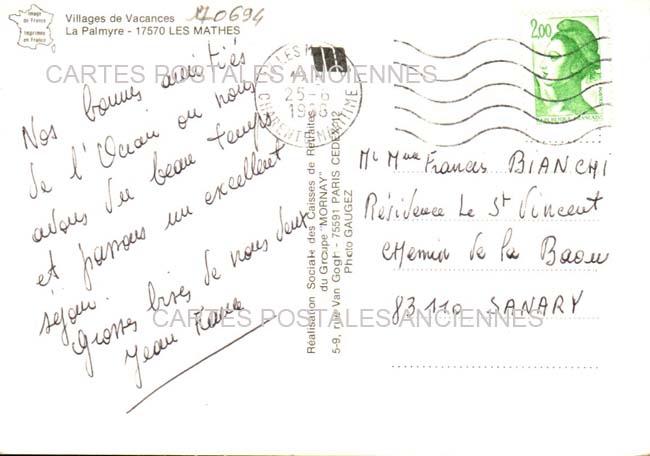 Image
de France
Imprimée
en France
Villages de Vacances
La Palmyre - 17570 LES MATHES
170694
CARTES POSTALES ANCIENNES
Nos bonnes amitiés
de l'Ocean ou nous
avons du beau temps
et passons un excellent
séjour.
Grosses bises de nous deux
Jean
LES M
25-8
CHARENTE MARITIME
Réalisation Sociale des Caisses de Retraites
du Groupe "MORNAY"
5-9, rue Van Gogh - 75591 PARIS CEDEX 12
Photo GAUGEZ
2,00
Mr Mme Francis BIANCHI
Résidence Le St Vincent
CHemin de la Baou
83110 SANARY
CARTES POSTALES ANCIENNES